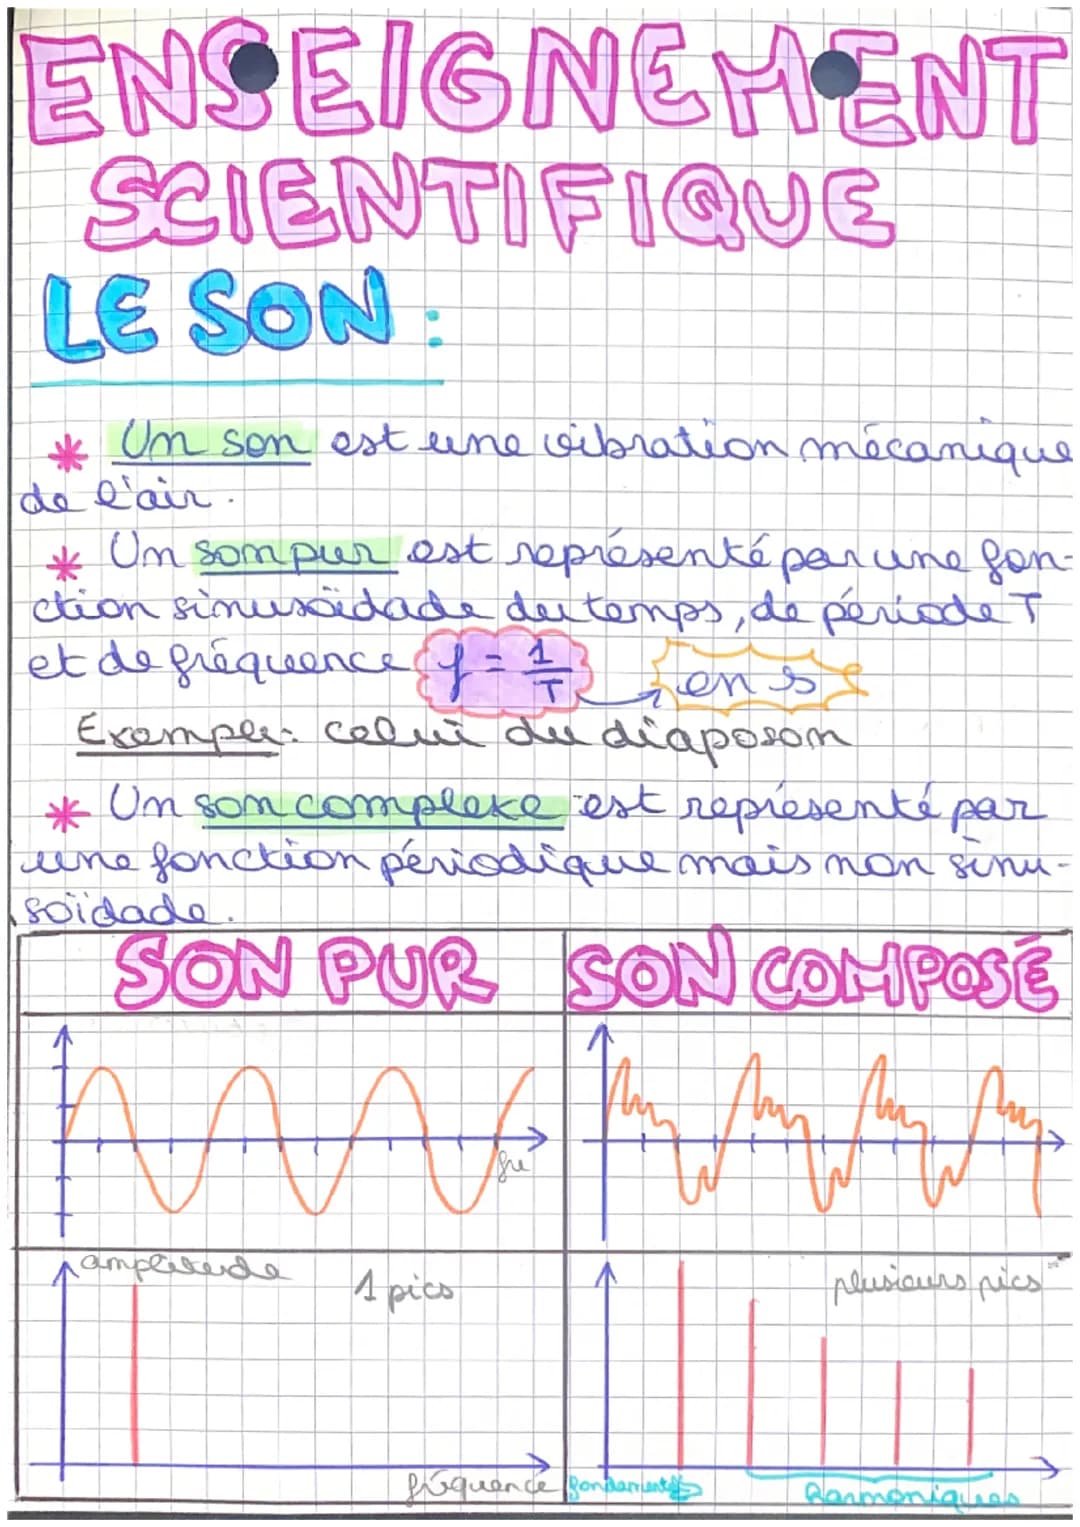 ENSEIGNEMENT
SCIENTIFIQUE
LE SON :
* Un son est une vibration mécanique
de l'air.
* Un son pur est représenté par une fon-
ction sinusoïdade du temps, de période T
et de fréquence f = 1/T en s
Exemple: celui du diapason
* Un son complexe est représenté par
une fonction périodique mais non sinu-
soïdade.
SON PUR
SON COMPOSÉ
amplitude
1 pics
plusieurs pics
fréquence
Harmoniques